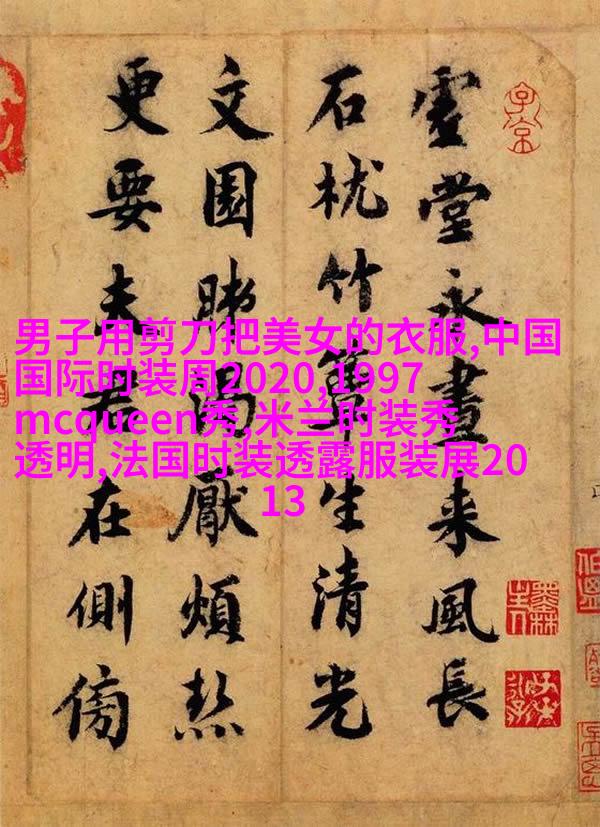 虛堂永晝来風長
石枕竹簟生清光
文園肺渴厭煩熱
更要夫君在側傍
男子用剪刀把美女的衣服,中国
国际时装周2020,1997
mcqueen秀,米兰时装秀
透明,法国时装透露服装展20
13